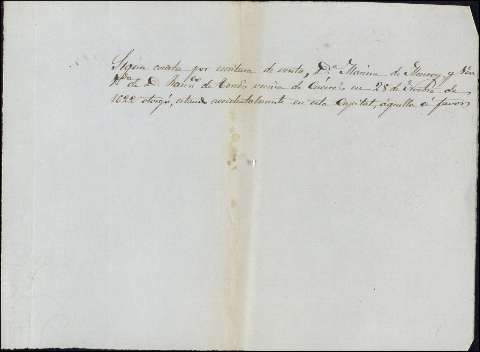 Segun consta por escritura de venta, D.ª Mariana de Monroy y
V.da de D. Fran.co de vecina de Cáceres en 28 de Octubre de
1822 otorgó, estando accidentalmente en esta Capital, aquella á favor